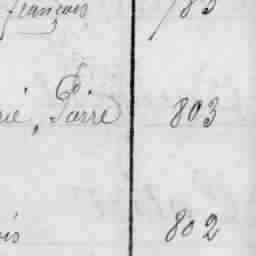 françois 785
rie, Pierre 803
ois 802